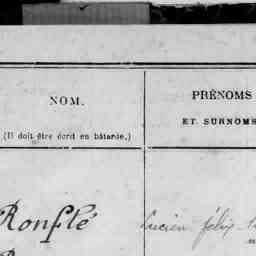 NOM.
(Il doit être écrit en bâtarde.)
PRÉNOMS
ET SURNOMS
Ronflé
Lucien félix